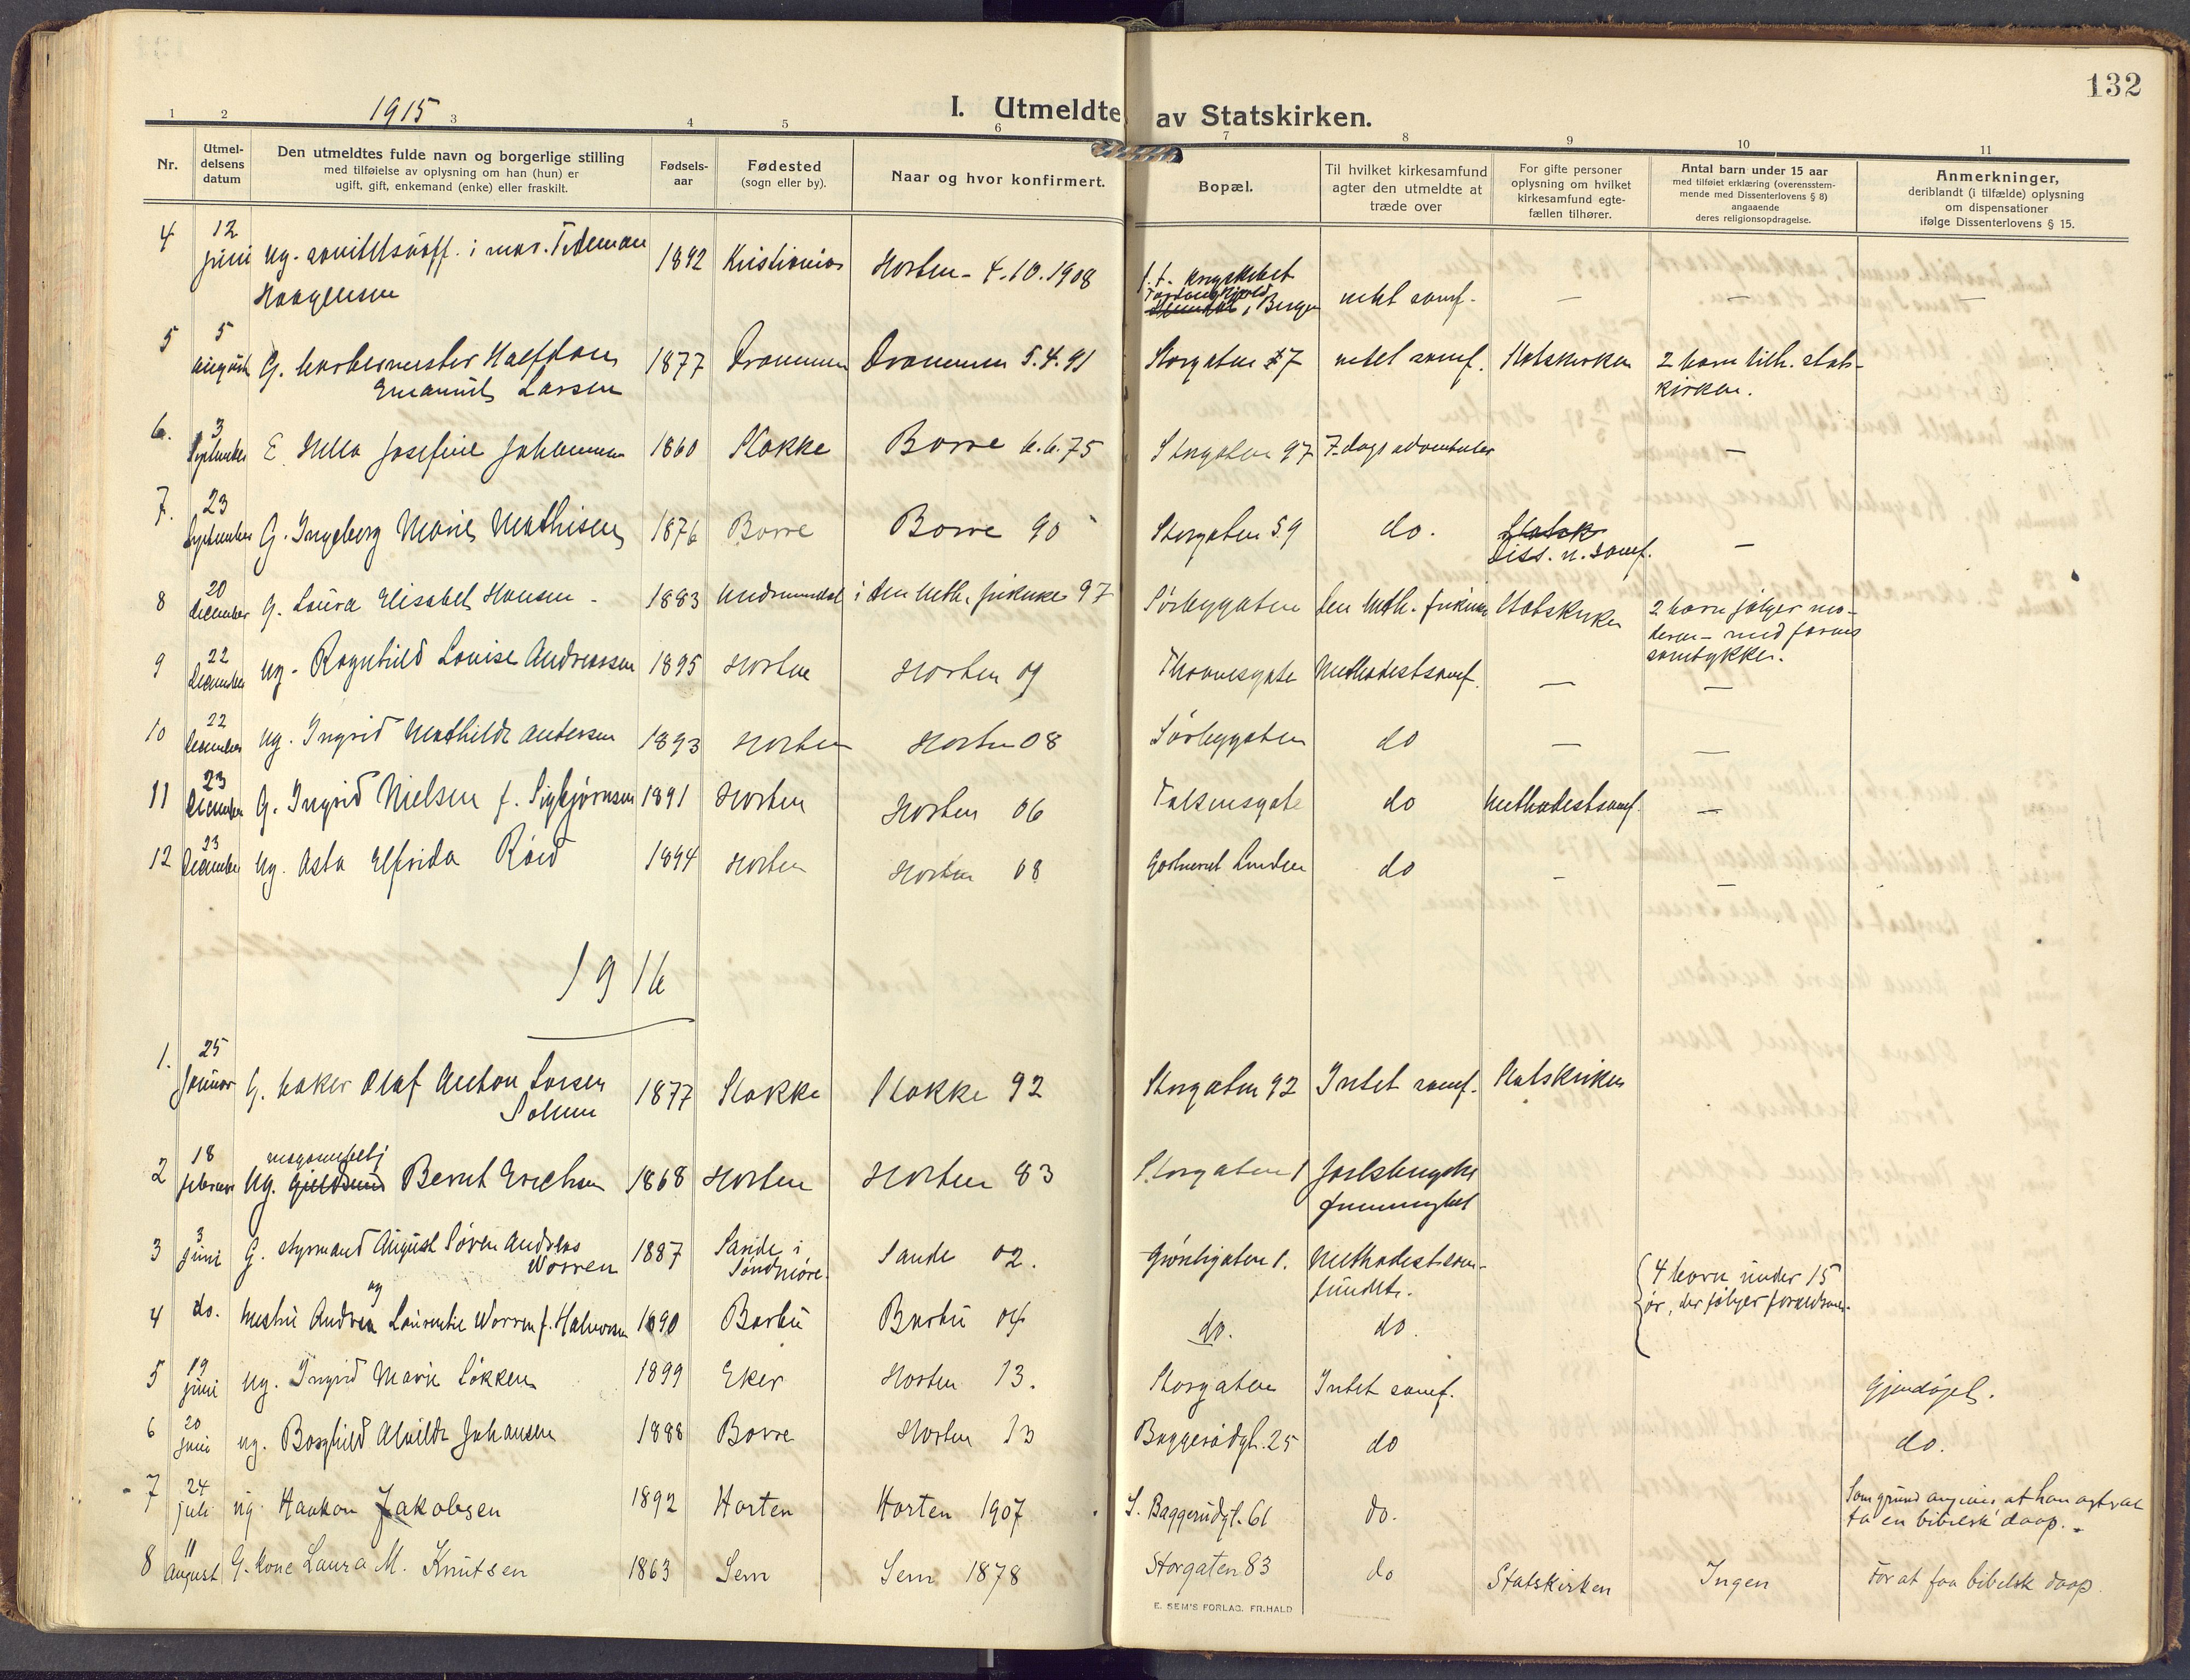 132
1915
I. Utmeldte av Statskirken.
1 2 3 4 5 6 7 8 9 10 11
Nr.
Utmel-
delsens
datum
Den utmeldtes fulde navn og borgerlige stilling
med tilføielse av oplysning om han (hun) er
ugift, gift, enkemand (enke) eller fraskilt.
Fødsels-
aar
Fødested
(sogn eller by).
Naar og hvor konfirmert.
Bopæl.
Til hvilket kirkesamfund
agter den utmeldte at
træde over
For gifte personer
oplysning om hvilket
kirkesamfund egte-
fællen tilhører.
Antal barn under 15 aar
med tilføiet erklæring (overensstem-
mende med Dissenterlovens § 8)
angaaende
deres religionsopdragelse.
Anmerkninger,
deriblandt (i tilfælde) oplysning
om dispensationer
ifølge Dissenterlovens § 15.
4 12 juni ug. i mar. Tideman 1892 Kristiania Horten - 4.10.1908 Bergen intet samf. — — —
Haagensen
5 5 august G. Halfdan 1877 Drammen Drammen 5.4.91 Storgaten 37 intet samf. Statskirken 2 barn tilh. stats-
Emanuel Larsen kirken.
6. 3 September E. Josefine Johannesen 1860 Stokke Borre 6.6.75 Storgaten 97 7-dags adventister —
7. 23 September G. Ingeborg Marie Mathisen 1876 Borre Borre 90 Storgaten 59 do. Statsk
Diss. u. samf. —
8 20 December G. Laura Elisabet Hansen - 1883 i den Meth. frikirke 97 Sørbygaten den Meth. frikirke Statskirken 2 barn følger mo-
deren - med farens
samtykke.
9 22 December ug. Ragnhild Louise Andreassen 1895 Horten Horten 09 Methodistsamf. — —
10 22 December ug. Ingrid Mathilde Andersen 1893 Horten Horten 08 Sørbygaten do — —
11 23 December G. Ingrid Nielsen f. Sigbjørnsen 1891 Horten Horten 06 Falsensgate do Methodistsamf. —
12 23 December ug. Asta Elfrida Röed 1894 Horten Horten 08 Linden do - —
1916
1. 25 Januar G. baker Olaf Anton Larsen 1877 Stokke Stokke 92 Storgaten 92 Intet samf. Statskirken
Solum
2 18 februar ug. Bernt Erichsen 1868 Horten Horten 83 Storgaten 1 Jarlsbergske
frimenighet
3 3 juni G. styrmand August Søren Andreas 1887 Sande i Sande 02. Grønligaten 1. Methodistsam-
Worren Søndmøre. fundet.
4 do. og hustru Andrea Laurentie Worren f. Halvorsen 1890 Barbu Barbu 04 do. do. 4 barn under 15
år, der følger forældrene.
5 19 juni ug. Ingrid Marie Løkken 1899 Eker Horten 13. Storgaten Intet samf. Gjendøpt.
6 20 juni ug. Borghild Alvilde Johansen 1888 Borre Horten 13 Baggerødgt. 25 do do.
7 24 juli ug. Haakon Jakobsen 1892 Horten Horten 1907 S. Baggerudgt. 61 do. Som grund angives, at han agter at
ta en bibelsk daap.
8 11 august G. kone Laura M. Knutsen 1863 Sem Sem 1878 Storgaten 83 do Statskirken Ingen For at faa bibelsk daap.
E. SEM'S FORLAG. FR.HALD